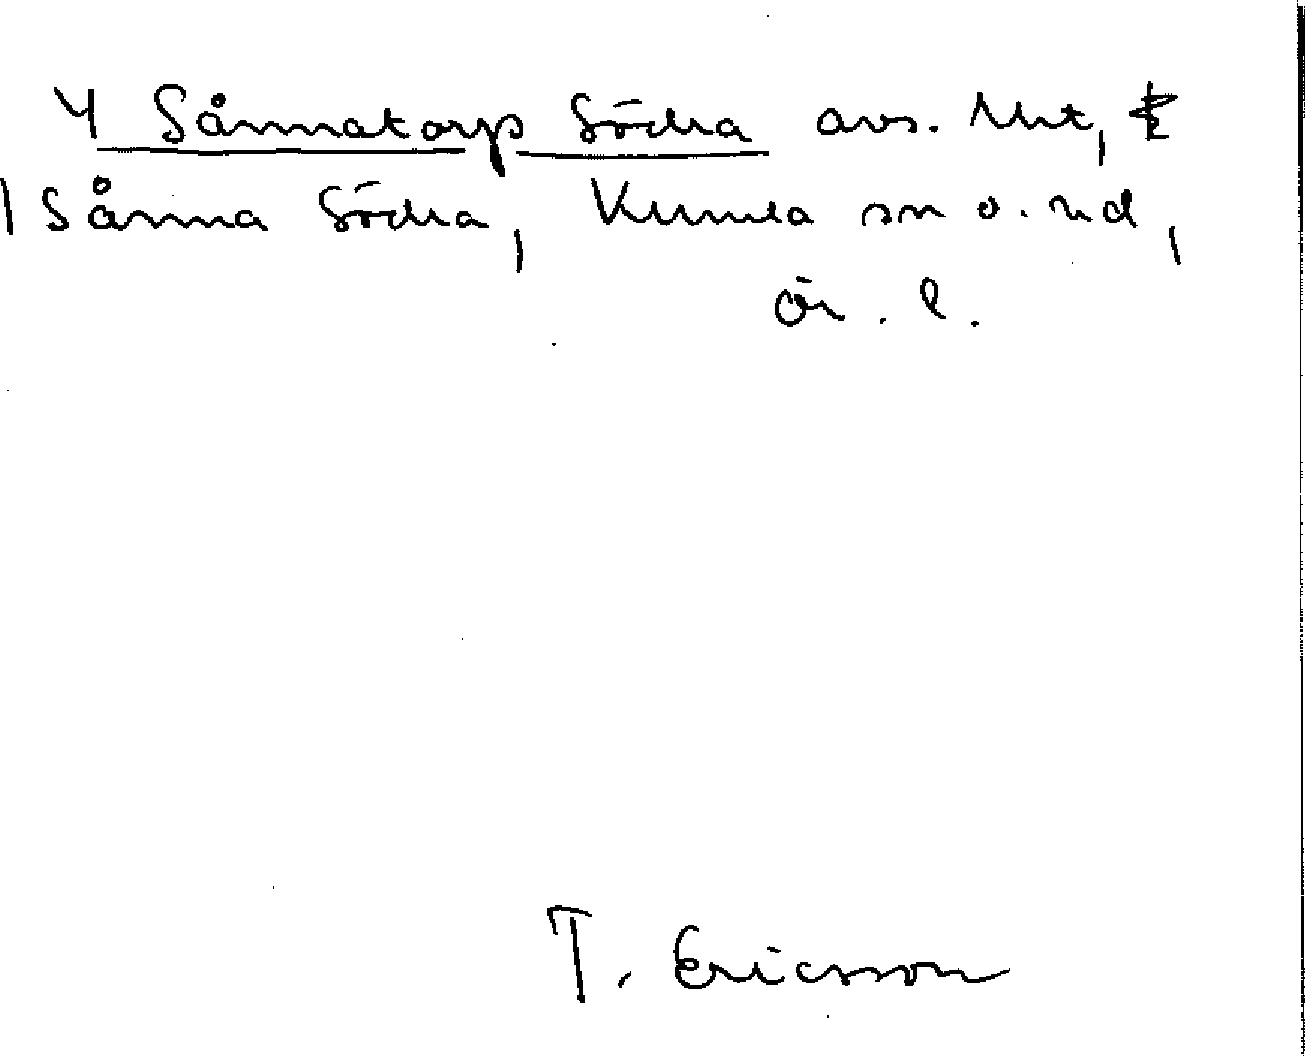 4 Sånnatorp Södra avs. Utr,
1 Sånna Södra, Kumla sn o. hd,
Ör. l.
T. Ericsson